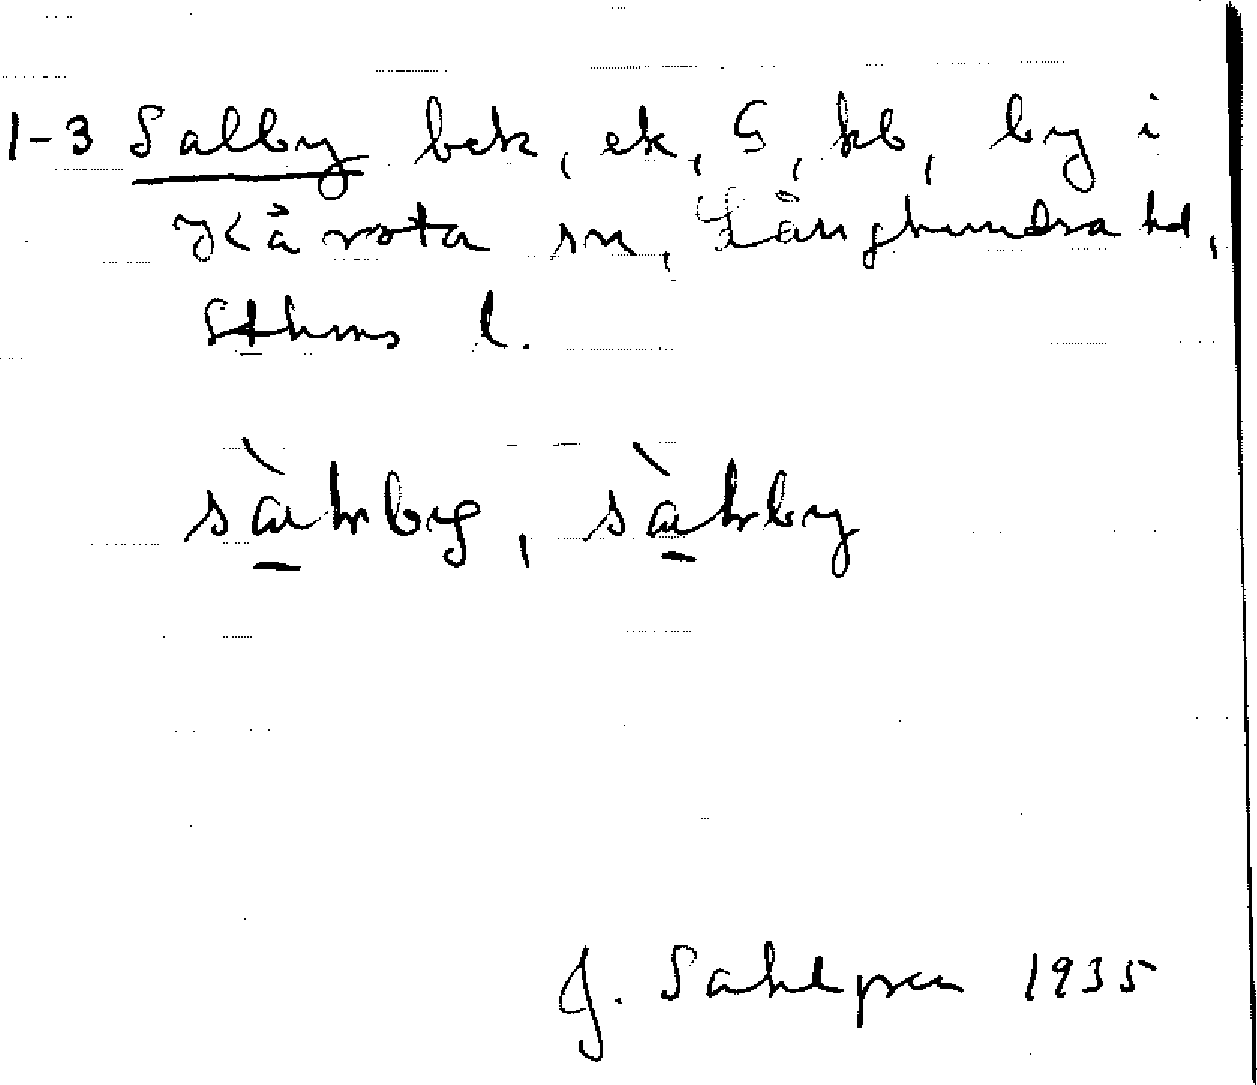 1-3 Salby bek, ek, S, kb, by i
Kårsta sn, Långhundra hd,
Sthms l.
J. Sahlgren 1935